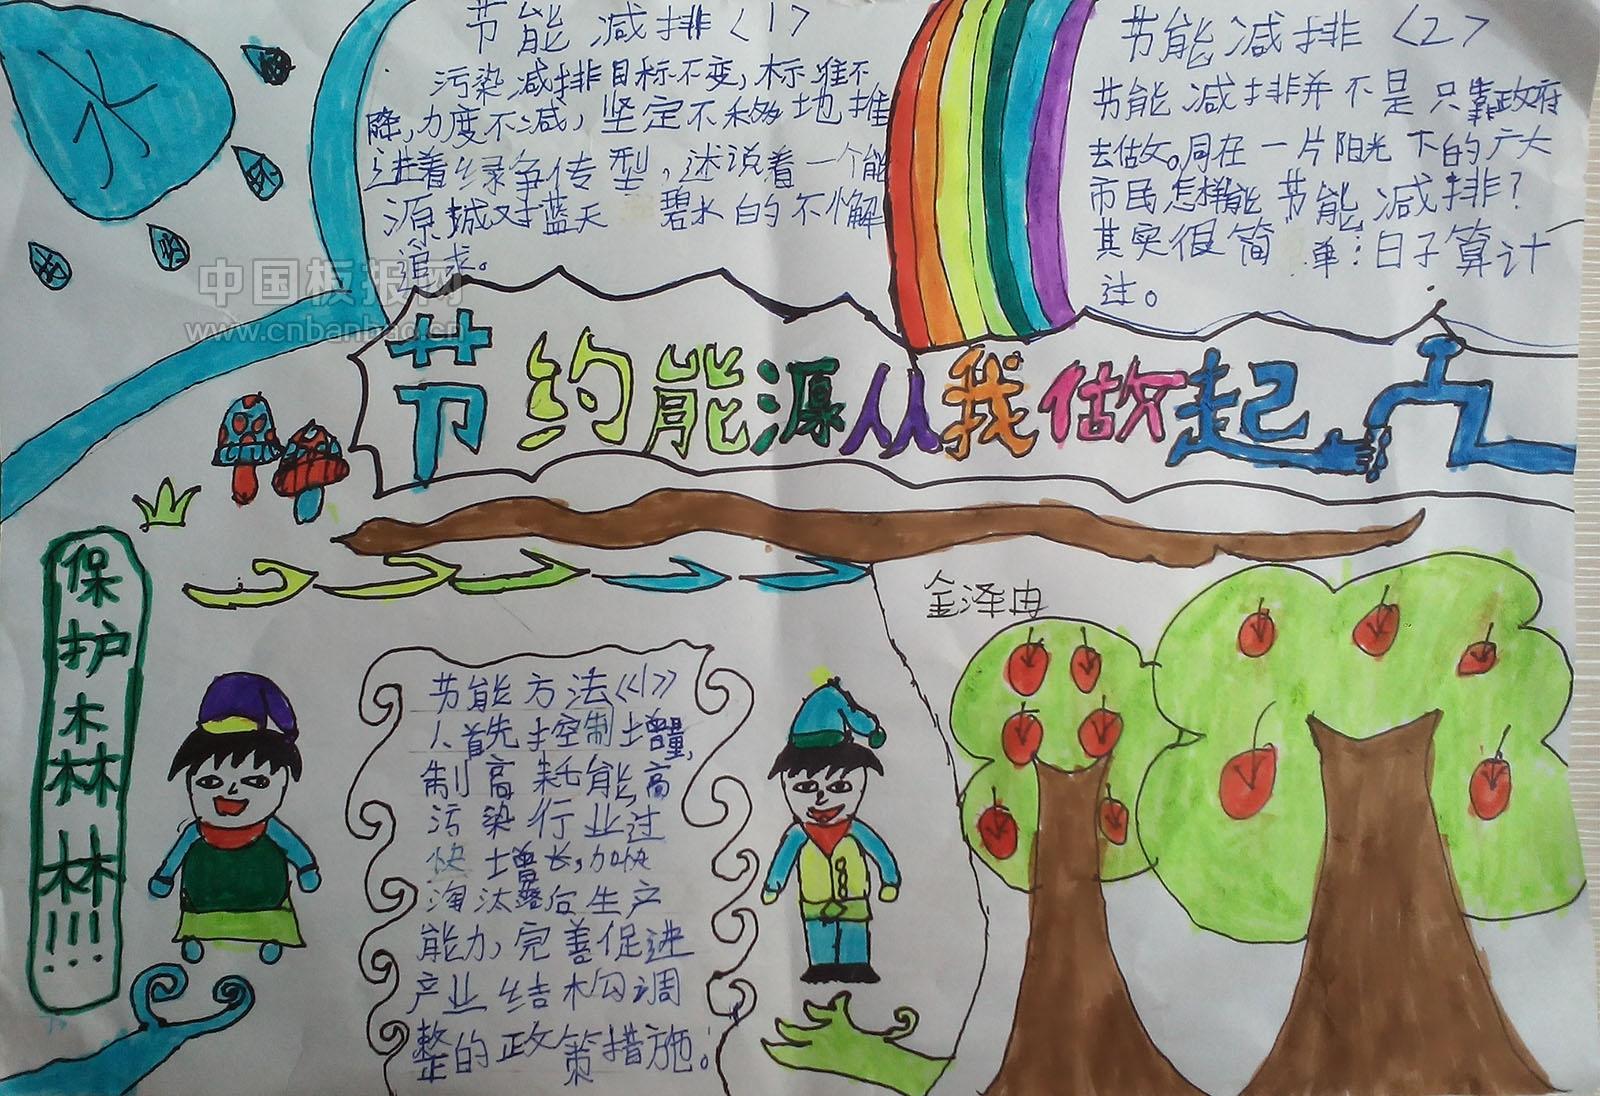 水
节能减排<1>
污染减排目标不变,标准不
降,力度不减,坚定不移地推
进着绿争传型,述说着一个能
源城对蓝天 碧水的不懈
追求。
节能减排<2>
节能减排并不是只靠政府
去做。同在一片阳光下的广大
市民怎样能节能减排?
其实很简单:日子算计
过。
中国板报网
www.cnbanbao.cn
节约能源从我做起
保护森林!!!
金泽冉
节能方法<<1>>
人首先控制增量,
制高耗能,高
污染行业过
快增长,加快
淘汰落后生产
能力,完善促进
产业结构调
整的政策措施。